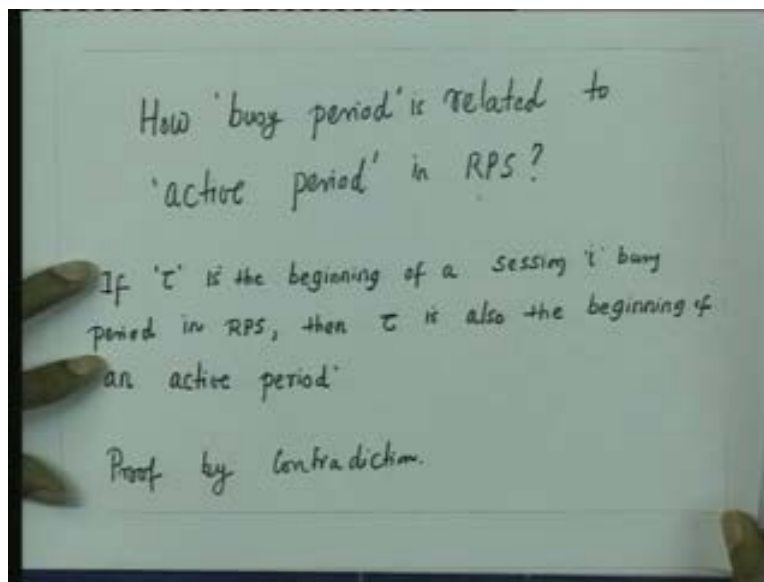 How 'busy period' is related to
'active period' in RPS?
If 'τ' is the beginning of a session 'i' busy
period in RPS, then τ is also the beginning of
an active period'
Proof by Contradiction.